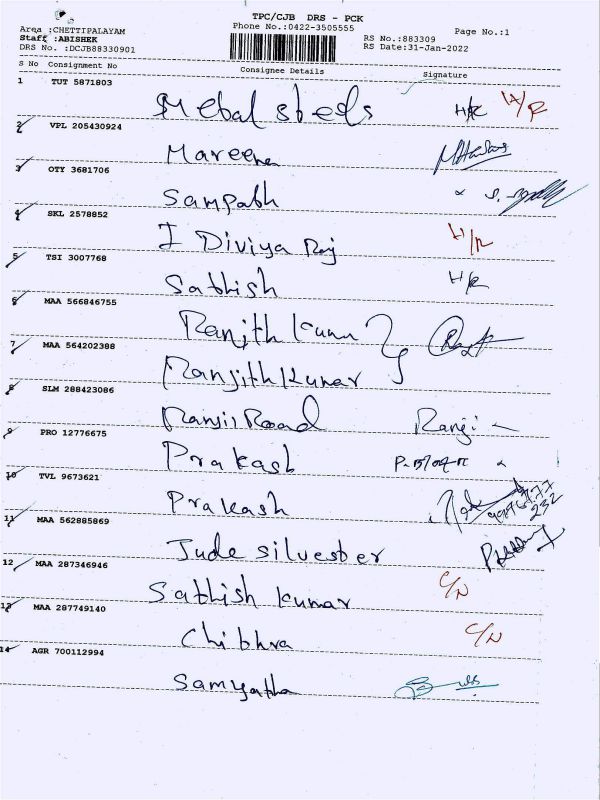 TPC/CJB DRS - PCK
Area :CHETTIPALAYAM
Phone No.:0422-3505555
Page No.:1
Staff :ABISHEK
RS No.:883309
DRS No. :DCJB88330901
RS Date:31-Jan-2022
S No Consignment No Consignee Details Signature
1 TUT 5871803
Metal steels H/R H/R
2 VPL 205430924
Mareena
3 OTY 3681706
Sampath
4 SKL 2578852
I Diviya Raj H/R
5 TSI 3007768
Sathish H/R
6 MAA 566846755
Ranjith Kumar
7 MAA 564202388
Ranjith Kumar
8 SLM 288423086
Ranji Road Ranji
9 PRO 12776675
Prakash
10 TVL 9673621
Prakash
11 MAA 562885869
Jude silvester
12 MAA 287346946
Sathish kumar C/N
13 MAA 287749140
Chithra C/N
14 AGR 700112994
Samyatha